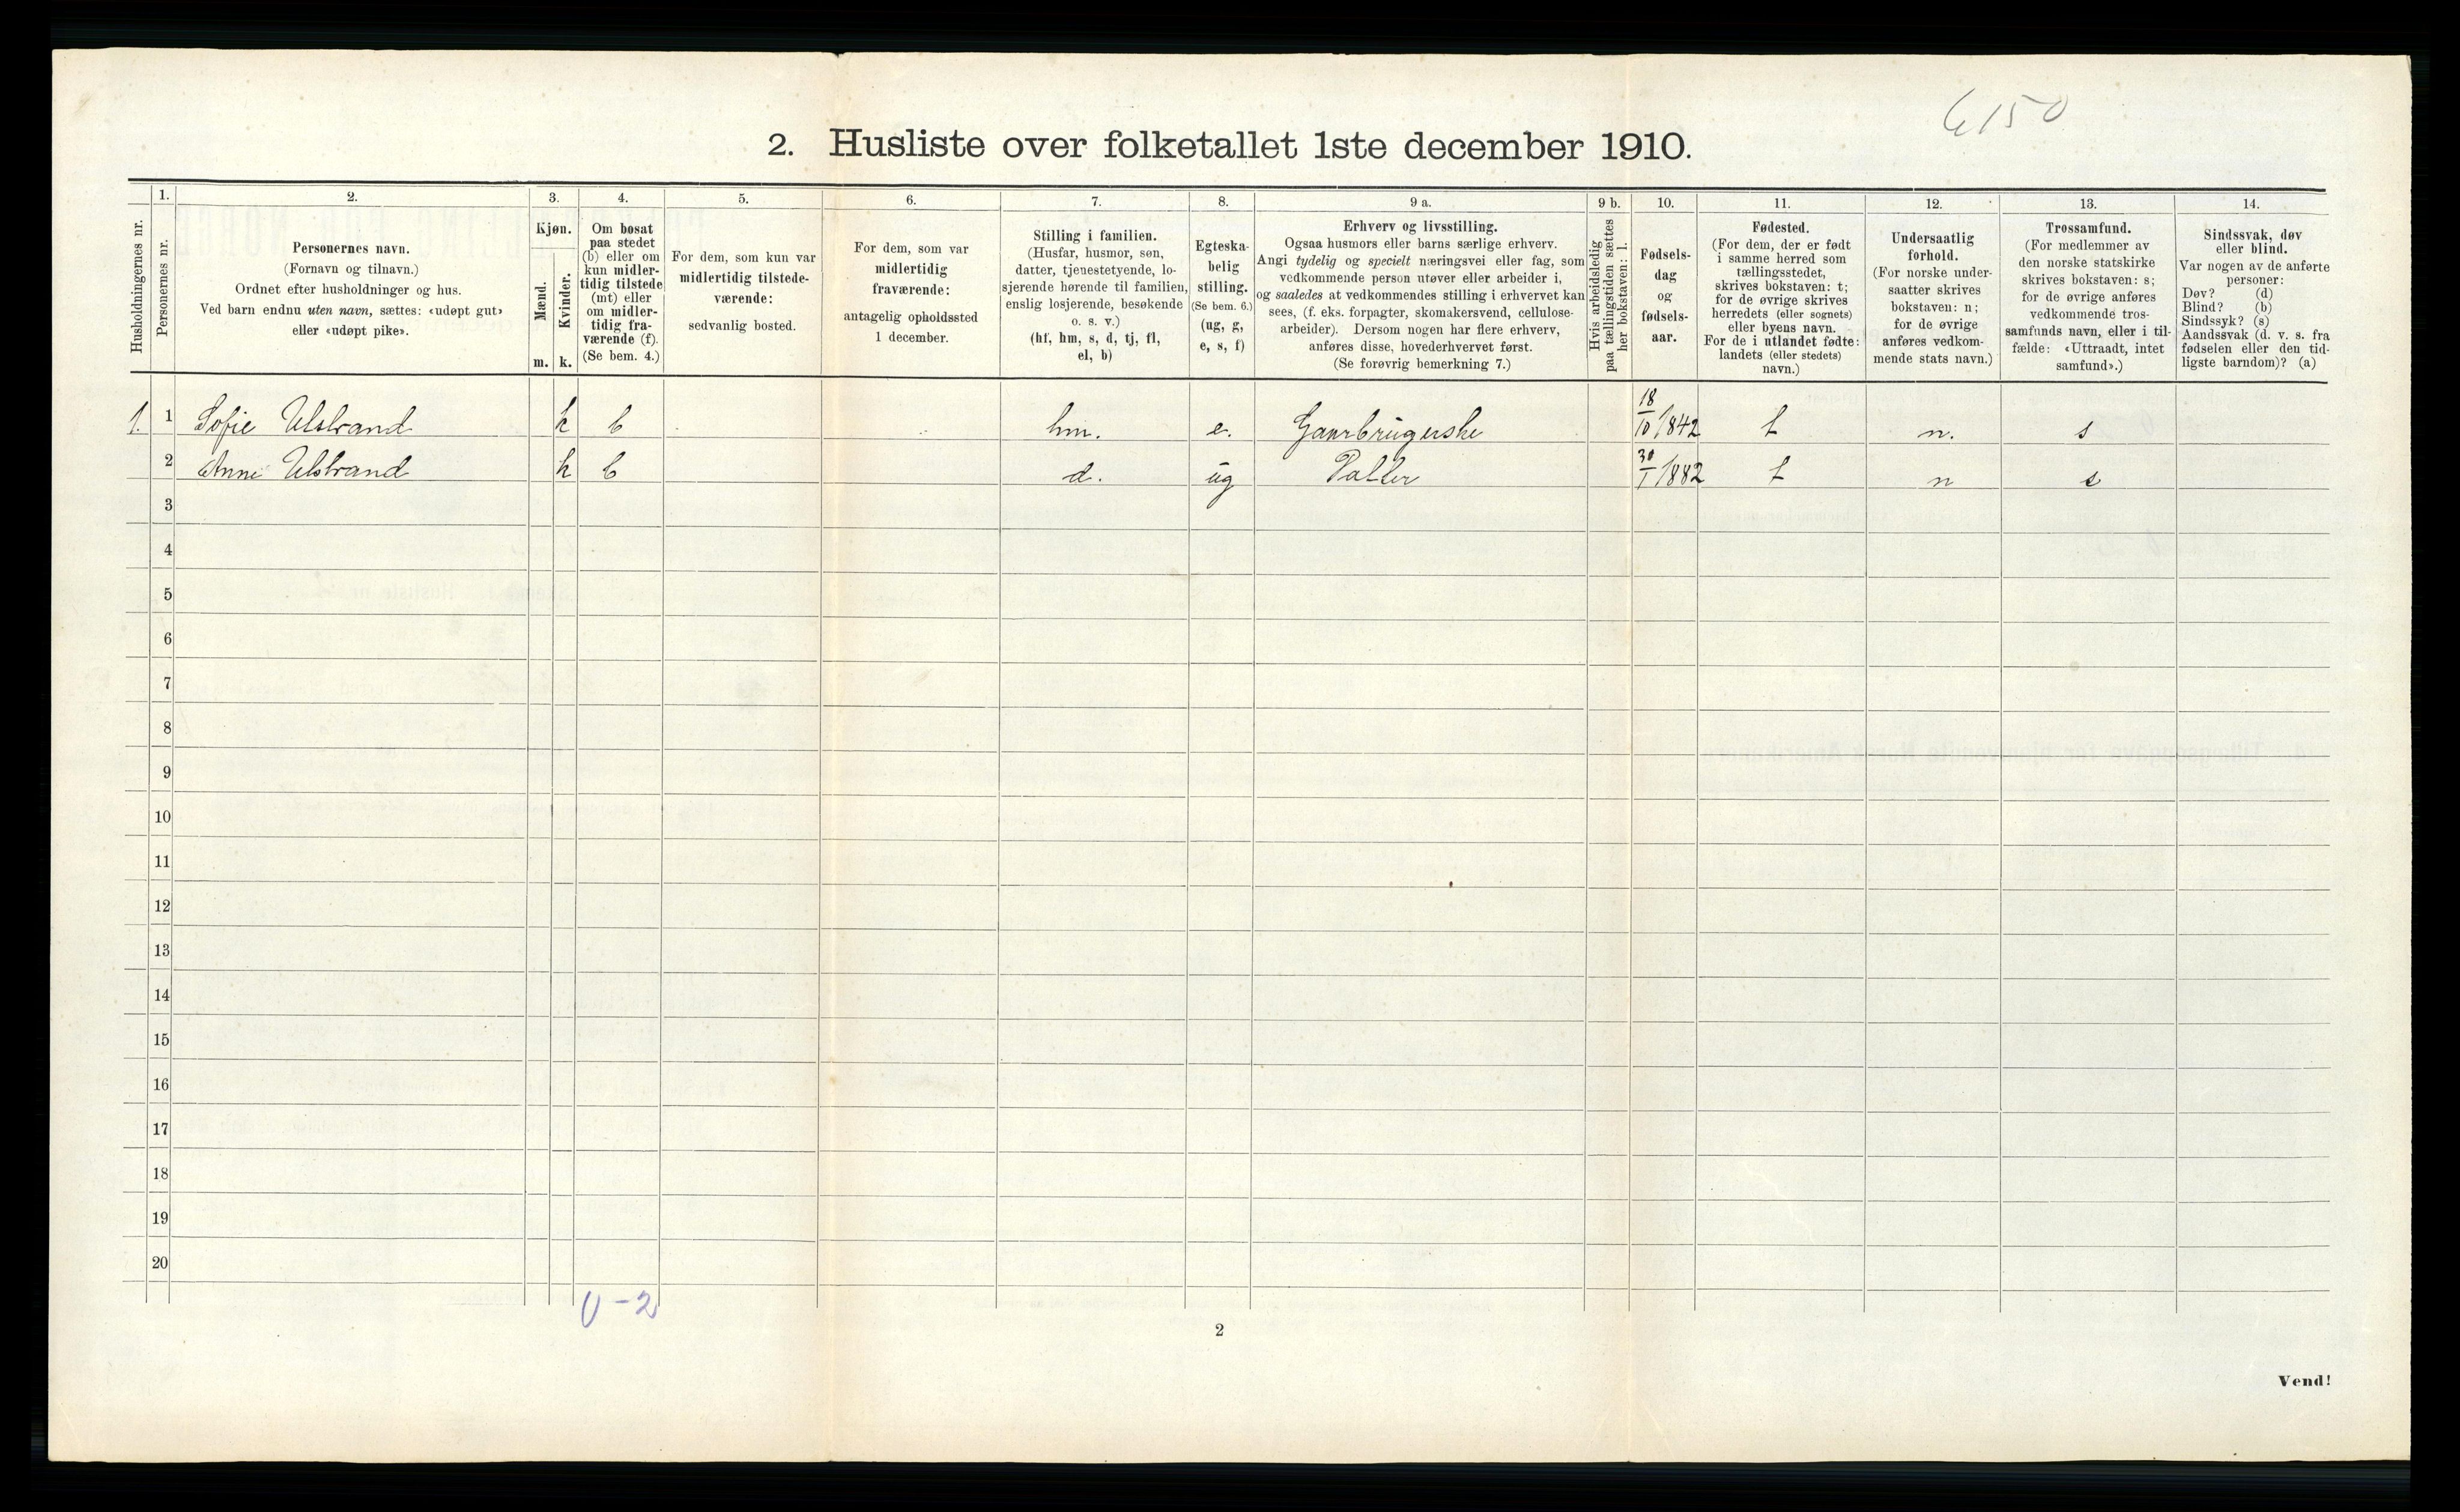 6150
2. Husliste over folketallet 1ste december 1910.
Husholdningernes nr.
1.
Personernes nr.
2.
Personernes navn.
(Fornavn og tilnavn.)
Ordnet efter husholdninger og hus.
Ved barn endnu uten navn, sættes: «udøpt gut»
eller «udøpt pike».
3.
Kjøn.
Mænd.
Kvinder.
m. k.
4.
Om bosat
paa stedet
(b) eller om
kun midler-
tidig tilstede
(mt) eller
om midler-
tidig fra-
værende (f).
(Se bem. 4.)
5.
For dem, som kun var
midlertidig tilstede-
værende:
sedvanlig bosted.
6.
For dem, som var
midlertidig
fraværende:
antagelig opholdssted
1 december.
7.
Stilling i familien.
(Husfar, husmor, søn,
datter, tjenestetyende, lo-
sjerende hørende til familien,
enslig losjerende, besøkende
o. s. v.)
(hf, hm, s, d, tj, fl,
el, b)
8.
Egteska-
belig
stilling.
(Se bem. 6.)
(ug, g,
e, s, f)
9 a.
Erhverv og livsstilling.
Ogsaa husmors eller barns særlige erhverv.
Angi tydelig og specielt næringsvei eller fag, som
vedkommende person utøver eller arbeider i,
og saaledes at vedkommendes stilling i erhvervet kan
sees, (f. eks. forpagter, skomakersvend, cellulose-
arbeider). Dersom nogen har flere erhverv,
anføres disse, hovederhvervet først.
(Se forøvrig bemerkning 7.)
9 b.
Hvis arbeidsledig
paa tællingstiden sættes
her bokstaven: l.
10.
Fødsels-
dag
og
fødsels-
aar.
11.
Fødested.
(For dem, der er født
i samme herred som
tællingsstedet,
skrives bokstaven: t;
for de øvrige skrives
herredets (eller sognets)
eller byens navn.
For de i utlandet fødte:
landets (eller stedets)
navn.)
12.
Undersaatlig
forhold.
(For norske under-
saatter skrives
bokstaven: n;
for de øvrige
anføres vedkom-
mende stats navn.)
13.
Trossamfund.
(For medlemmer av
den norske statskirke
skrives bokstaven: s;
for de øvrige anføres
vedkommende tros-
samfunds navn, eller i til-
fælde: «Uttraadt, intet
samfund».)
14.
Sindssvak, døv
eller blind.
Var nogen av de anførte
personer:
Døv? (d)
Blind? (b)
Sindssyk? (s)
Aandssvak (d. v. s. fra
fødselen eller den tid-
ligste barndom)? (a)
1. 1 Sofie Ulstrand k b hm. e. Gaarbrugerske 18/10 1842 t n. s
2 Anne Ulstrand k b d. ug 30/1 1882 t n s
3
4
5
6
7
8
9
10
11
12
13
14
15
16
17
18
19
20
0-2
2
Vend!